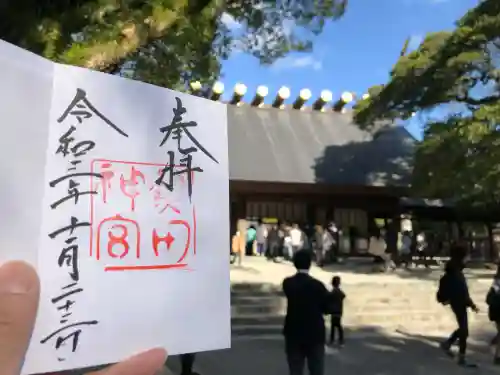 奉拝
熱田
神宮
令和三年十一月二十三日